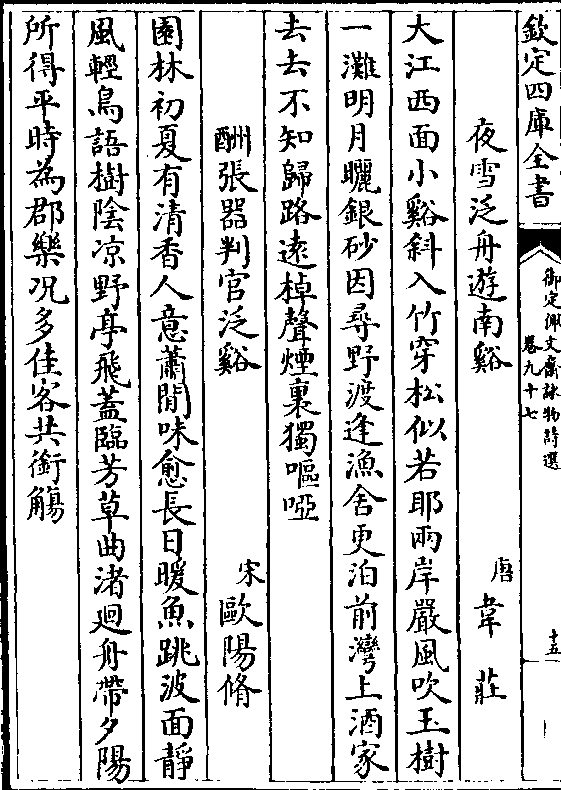 欽定四庫全書
御定佩文齋詠物詩選
卷九十七
十五
夜雪泛舟遊南谿
唐
韋莊
大江西面小谿斜入竹穿松似若耶兩岸嚴風吹玉樹
一灘明月曬銀砂因尋野渡逢漁舍更泊前灣上酒家
去去不知歸路遠棹聲煙裏獨嘔啞
酬張器判官泛谿
宋
歐陽脩
園林初夏有清香人意蕭閒味愈長日暖魚跳波面靜
風輕鳥語樹陰凉野亭飛蓋臨芳草曲渚廻舟帶夕陽
所得平時為郡樂况多佳客共銜觴